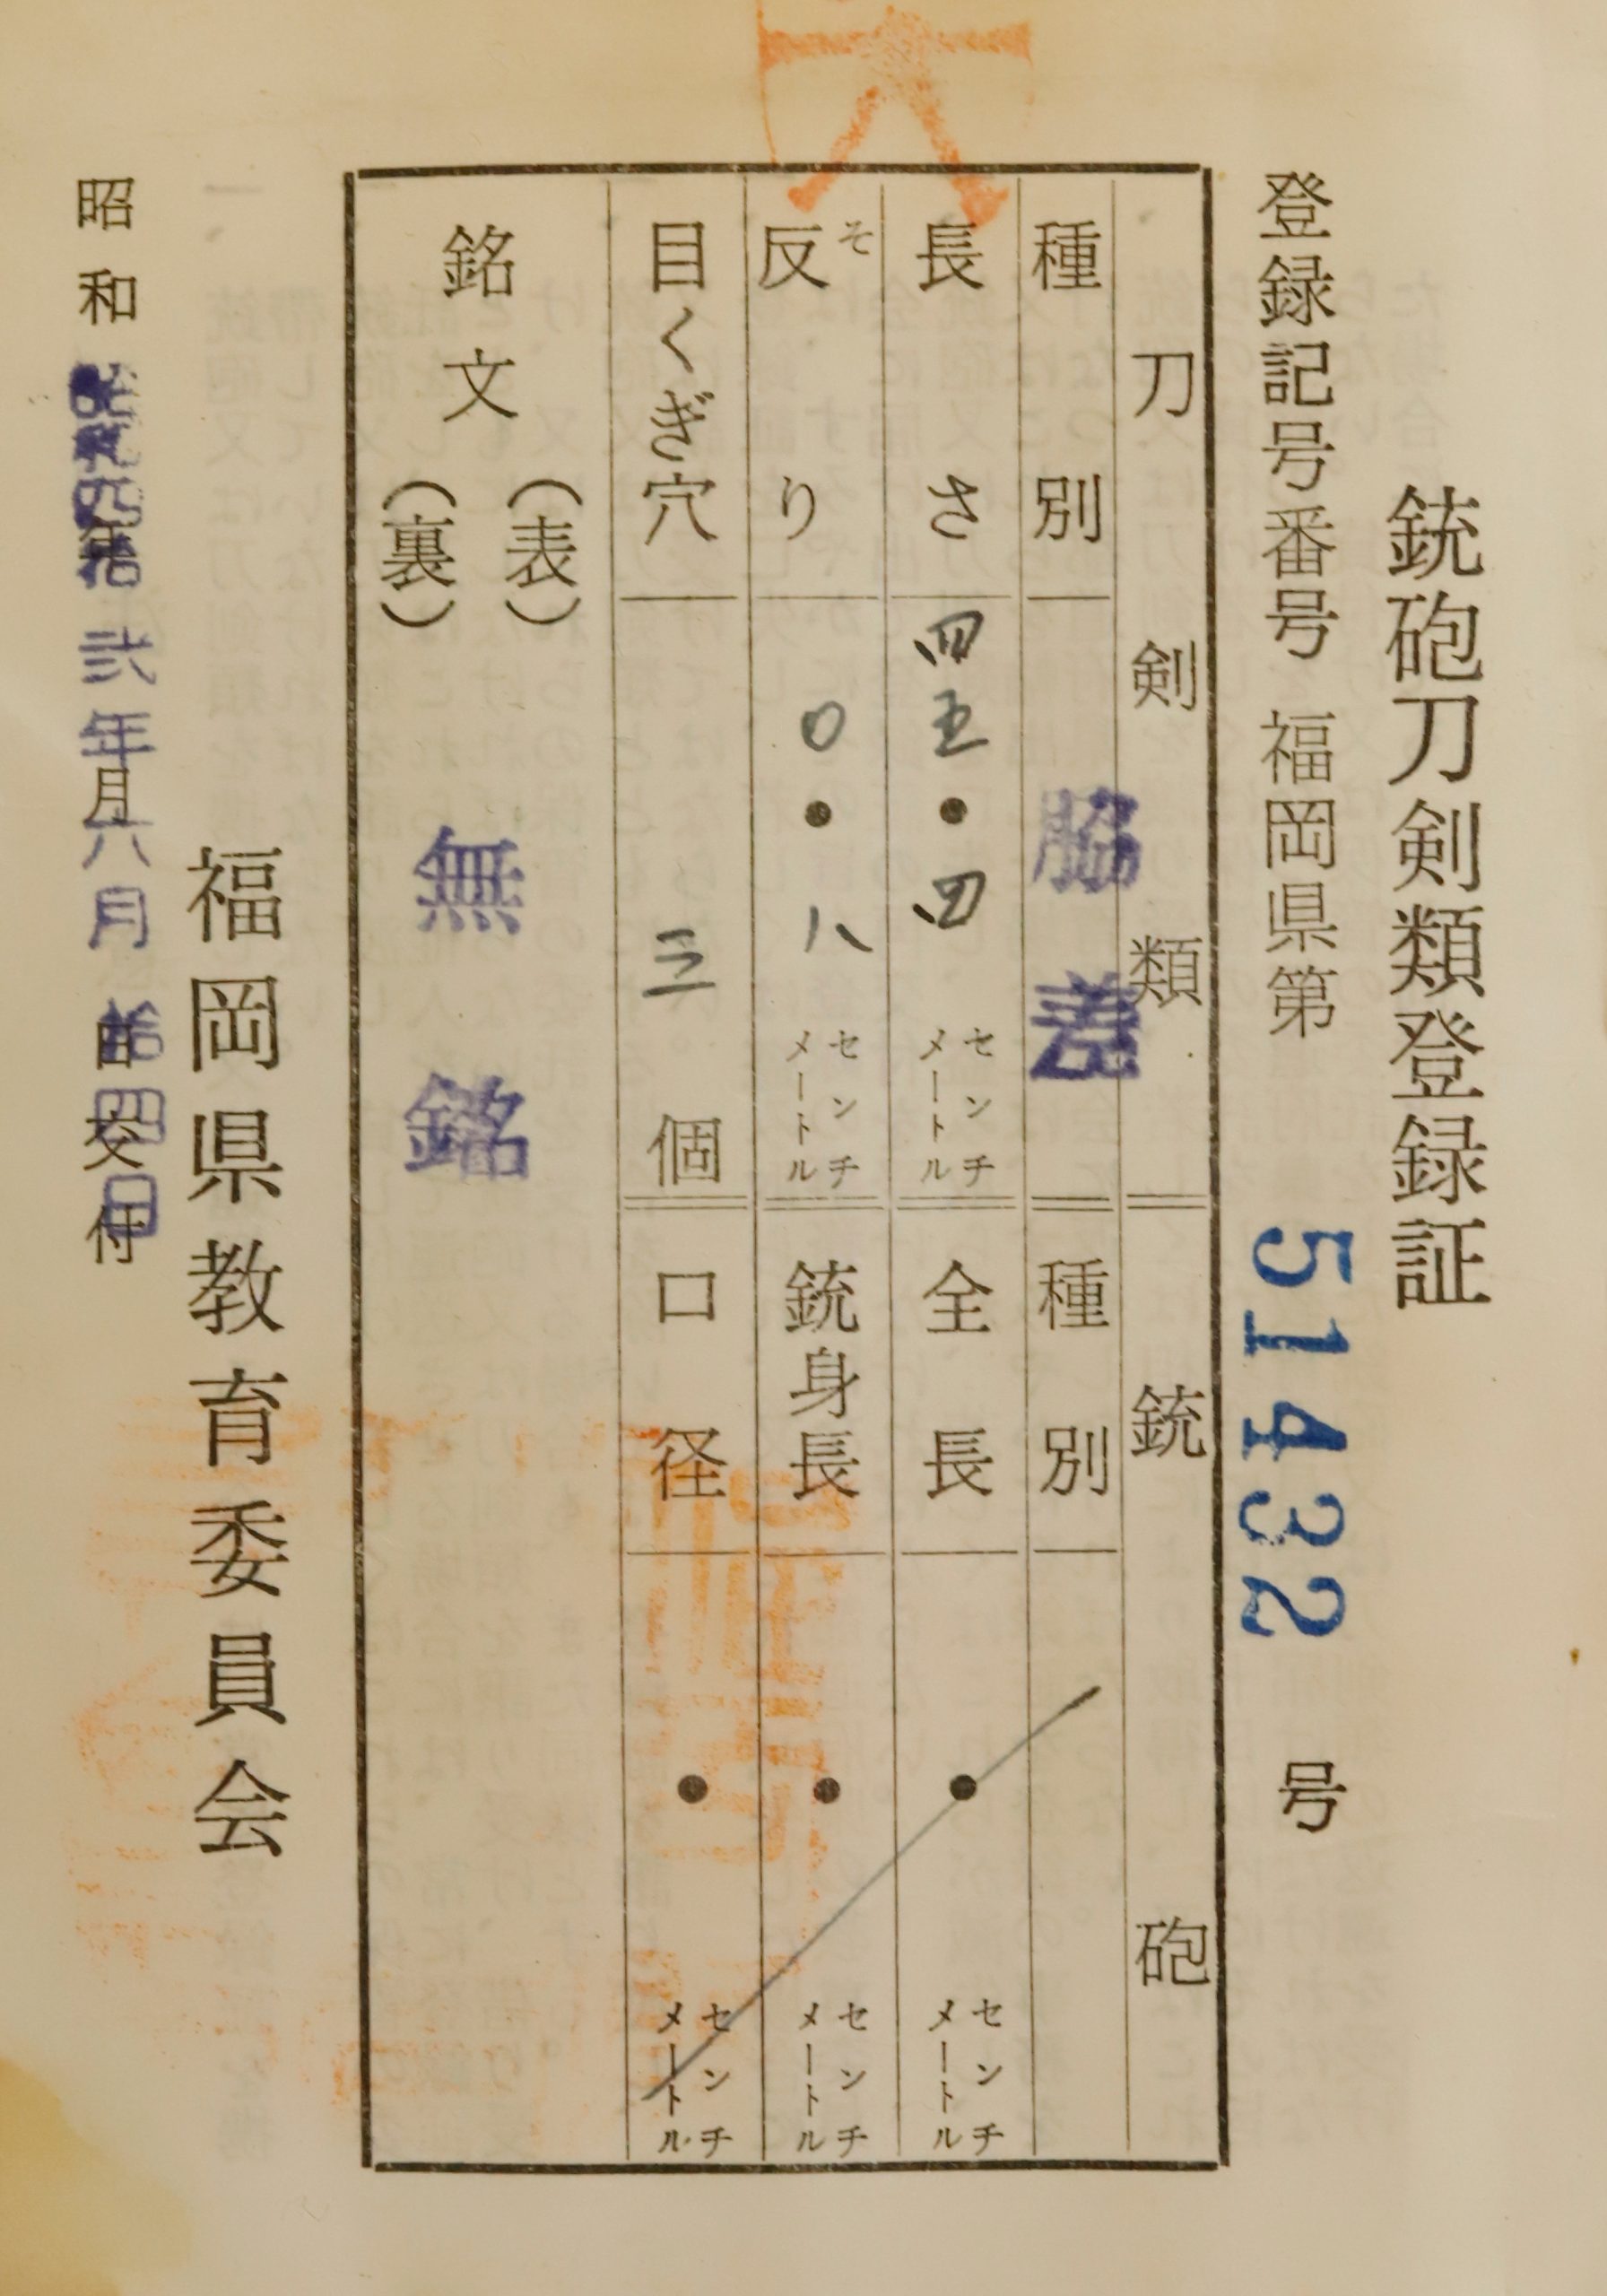 銃砲刀剣類登録証
登録記号番号 福岡県第 51432 号
刀剣類 銃砲
種別 脇差 種別
長さ 四五・四 センチメートル 全長 ・ センチメートル
反り 〇・八 センチメートル 銃身長 ・ センチメートル
そ
目くぎ穴 三 個 口径 ・ センチメートル
銘文 (表) (裏) 無銘
福岡県教育委員会
昭和 年 月 日 交付
弐年 六月 拾四日